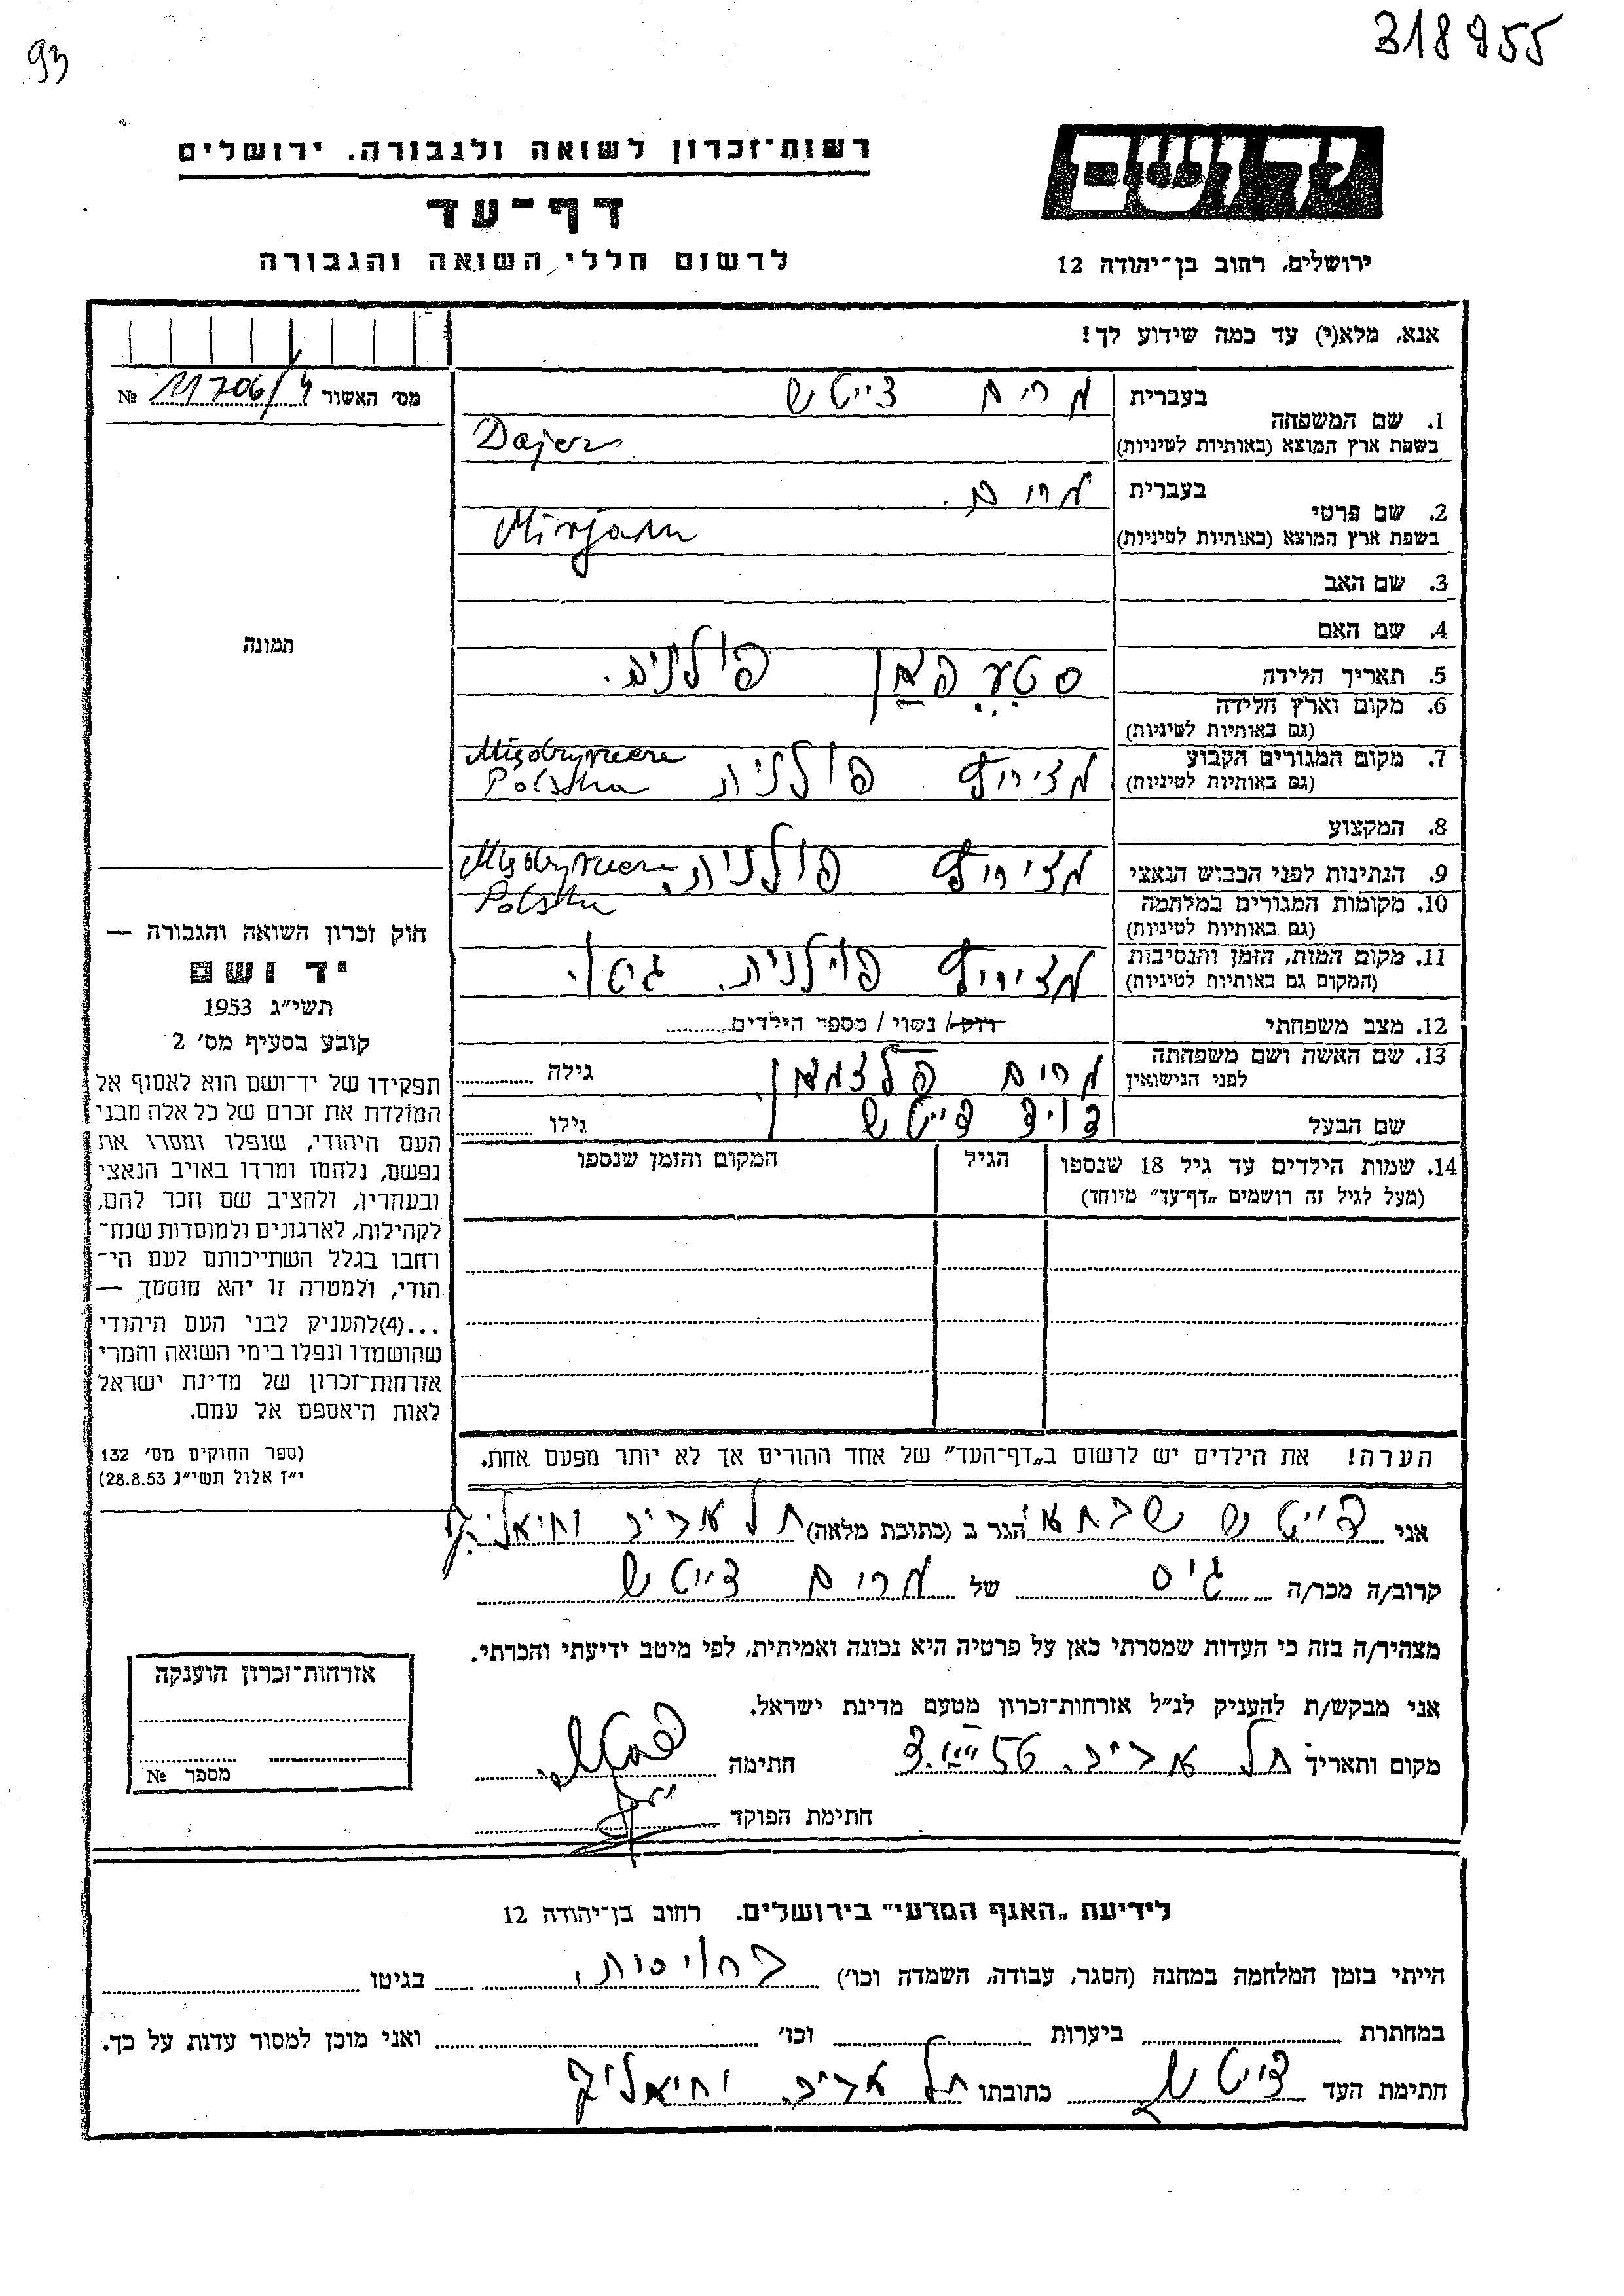 93
318955
רשות־זכרון לשואה ולגבורה. ירושלים
דף־עד
לרשום חללי השואה והגבורה
יד ושם
ירושלים, רחוב בן־יהודה 12
אנא, מלא(י) עד כמה שידוע לך!
מס׳ האשור 11706/4 №
תמונה
חוק זכרון השואה והגבורה —
יד ושם
תשי״ג 1953
קובע בסעיף מס׳ 2
תפקידו של יד־ושם הוא לאסוף אל
המולדת את זכרם של כל אלה מבני
העם היהודי, שנפלו ומסרו את
נפשם, נלחמו ומרדו באויב הנאצי
ובעוזריו, ולהציב שם וזכר להם,
לקהילות, לארגונים ולמוסדות שנח־
רחבו בגלל השתייכותם לעם הי־
הודי, ולמטרה זו יהא מוסמך —
...(4)להעניק לבני העם היהודי
שהושמדו ונפלו בימי השואה והמרי
אזרחות־זכרון של מדינת ישראל
לאות היאספם אל עמם.
(ספר החוקים מס׳ 132
י״ז אלול תשי״ג 28.8.53)
בעברית מרים דייטש
1. שם המשפחה
בשפת ארץ המוצא (באותיות לטיניות)
בעברית מרים.
2. שם פרטי
בשפת ארץ המוצא (באותיות לטיניות) Mirjam
3. שם האב
4. שם האם
5. תאריך הלידה פולניה.
6. מקום וארץ הלידה
(גם באותיות לטיניות)
7. מקום המגורים הקבוע
(גם באותיות לטיניות) פולנית Polska
8. המקצוע
9. הנתינות לפני הכבוש הנאצי פולנית.
10. מקומות המגורים במלחמה Polska
(גם באותיות לטיניות)
11. מקום המות, הזמן והנסיבות פולנית. גיטו.
(המקום גם באותיות לטיניות)
12. מצב משפחתי רווק/ נשוי / מספר הילדים
13. שם האשה ושם משפחתה
לפני הנישואין מרים גילה
שם הבעל דויד דייטש גילו
14. שמות הילדים עד גיל 18 שנספו
(מעל לגיל זה רושמים „דף־עד״ מיוחד)
הגיל
המקום והזמן שנספו
הערה! את הילדים יש לרשום ב„דף־העד״ של אחד ההורים אך לא יותר מפעם אחת.
אני דייטש שבתאי הגר ב (כתובת מלאה) תל אביב
קרוב/ה מכר/ה גיס של מרים דייטש
מצהיר/ה בזה כי העדות שמסרתי כאן על פרטיה היא נכונה ואמיתית, לפי מיטב ידיעתי והכרתי.
אני מבקש/ת להעניק לנ״ל אזרחות־זכרון מטעם מדינת ישראל.
מקום ותאריך תל אביב. חתימה
חתימת הפוקד
אזרחות־זכרון הוענקה
מספר №
לידיעת „האגף המדעי״ בירושלים. רחוב בן־יהודה 12
הייתי בזמן המלחמה במחנה (הסגר, עבודה, השמדה וכו׳) בגיטו
במחתרת ביערות וכו׳ ואני מוכן למסור עדות על כך.
חתימת העד דייטש כתובתו תל אביב